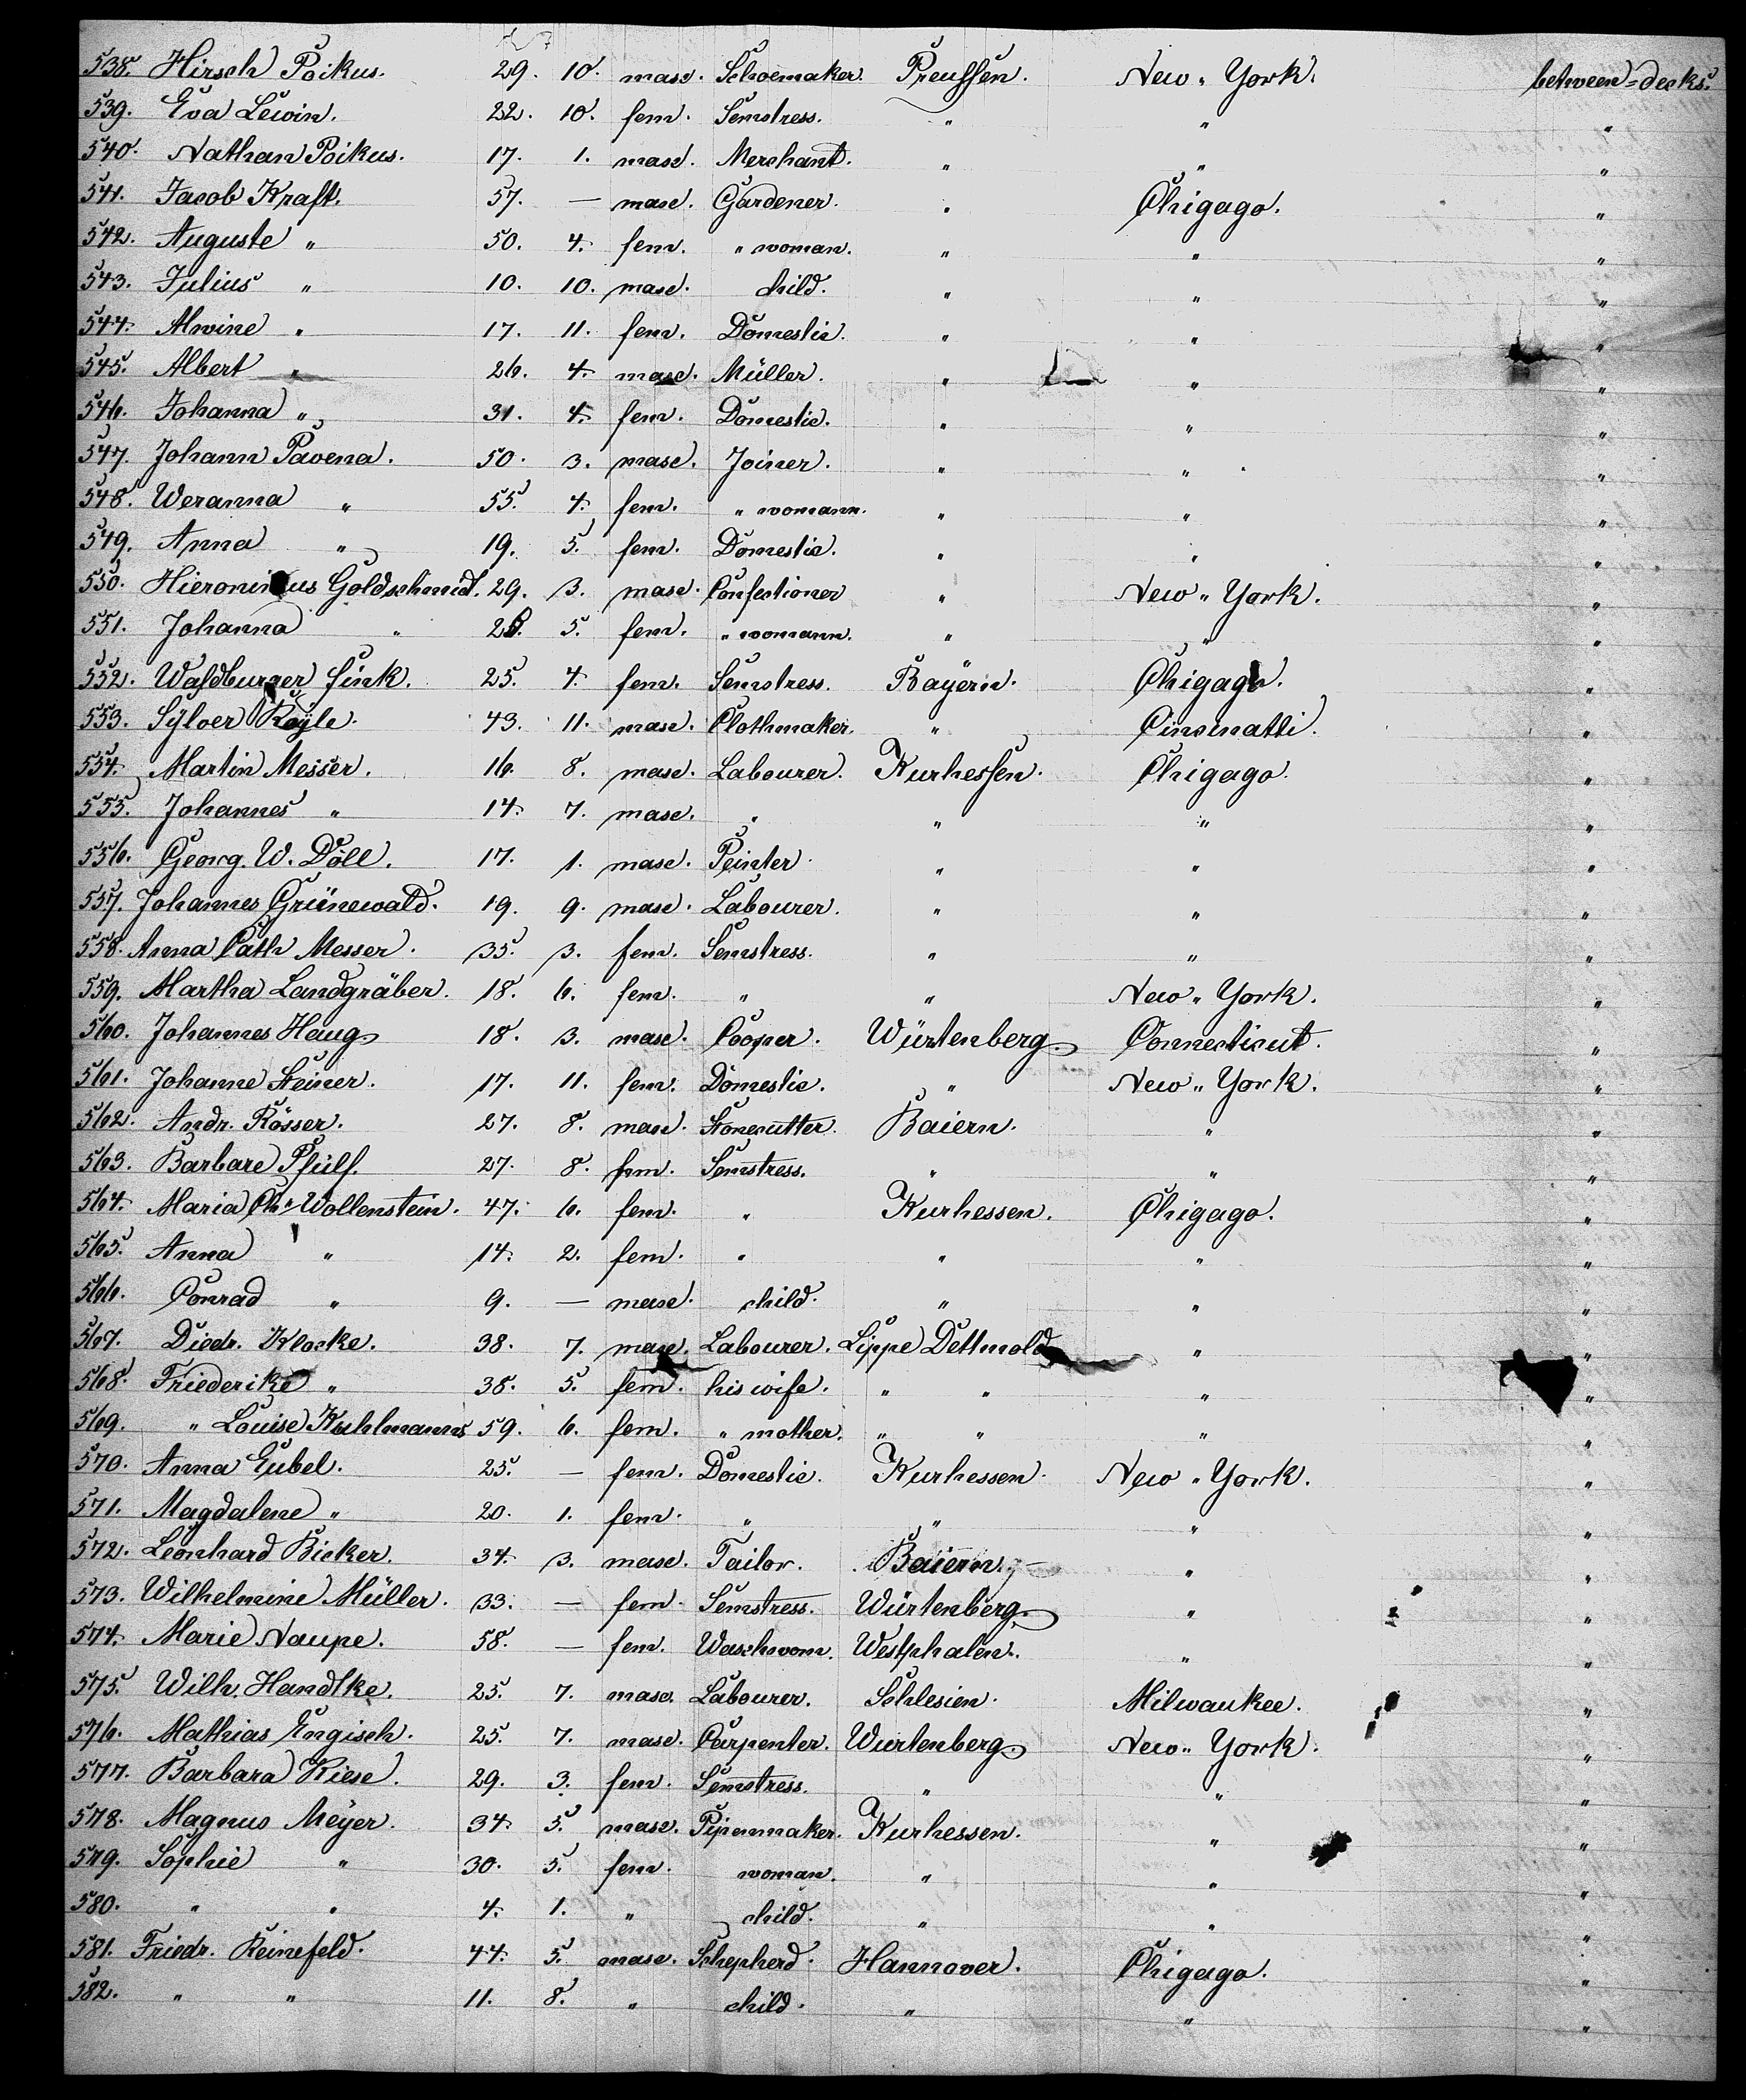 538. Hirsch Poikus. 29. 10. masc. Schoemaker. Preussen. New "York. between=decks.
539. Eva Lewin. 22. 10. fem. Semstress. " " "
540. Nathan Poikus. 17. 1. masc. Merchant. " " "
541. Jacob Kraft. 57. — masc. Gardener. " Chigago. "
542. Auguste " 50. 4. fem. " woman. " " "
543. Julius " 10. 10. masc. child. " " "
544. Alwine " 17. 11. fem. Domestic. " " "
545. Albert " 26. 4. masc. Müller. " " "
546. Johanna " 31. 4. fem. Domestic. " " "
547. Johann Pavena. 50. 3. masc. Joiner. " " "
548. Weranna " 55. 4. fem. " womann. " " "
549. Anna " 19. 5. fem. Domestic. " " "
550. Hieronimus Goldschmid. 29. 3. masc. Confectioner " New "York. "
551. Johanna " 5. fem. " womann. " " "
552. Waldburger Fink. 25. 4. fem. Semstress. Bayern. Chigago. "
553. Sylver Rogle. 43. 11. masc. Clothmaker. " Cincinatti. "
554. Martin Messer. 16. 8. masc. Labourer. Kurhessen. Chigago. "
555. Johannes " 14. 7. masc. " " " "
556. Georg. W. Döll. 17. 1. masc. Peinter. " " "
557. Johannes Grünewald. 19. 9. masc. Labourer. " " "
558. Anna Cath Messer. 35. 3. fem. Semstress. " " "
559. Martha Landgräber. 18. 6. fem. " " New "York. "
560. Johannes Haug 18. 3. masc. Cooper. Würtenberg. Connecticut. "
561. Johanne Steiner. 17. 11. fem. Domestic. " New "York. "
562. Andr. Rösser. 27. 8. masc. Stonecutter. Baiern. " "
563. Barbare Pfülf. 27. 8. fem. Semstress. " " "
564. Maria Ch. Wollenstein. 47. 6. fem. " Kurhessen. Chigago. "
565. Anna " 14. 2. fem. " " " "
566. Conrad " 9. — masc. child. " " "
567. Diedr. Klocke. 38. 7. masc. Labourer. Lippe Dettmold " "
568. Friederike " 38. 5. fem. his wife. " " " "
569. " Louise Kuhlmanns 59. 6. fem. " mother. " " " "
570. Anna Eubel. 25. — fem. Domestic. Kurhessen. New "York. "
571. Magdalene " 20. 1. fem. " " " "
572. Leonhard Bicker. 34. 3. masc. Tailor. Baiern. " "
573. Wilhelmine Müller. 33. — fem. Semstress. Würtenberg. " "
574. Marie Naupe. 58. — fem. Waschwom. Westphalen. " "
575. Wilh. Handtke. 25. 7. masc. Labourer. Schlesien. Milwaukee. "
576. Mathias Engisch. 25. 7. masc. Carpenter. Würtenberg. New "York. "
577. Barbara Riese. 29. 3. fem. Semstress. " " "
578. Magnus Meyer. 34. 5. masc. Pipenmaker. Kurhessen. " "
579. Sophie " 30. 5. fem. woman. " " "
580. " " 4. 1. " child. " " "
581. Friedr. Reinefeld. 44. 5. masc. Schepherd. Hannover. Chigago. "
582. " " 11. 8. " child. " " "